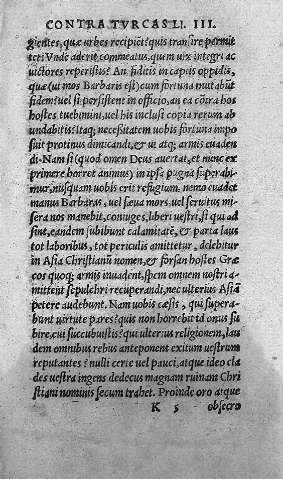 CONTRA TVRCAS LI. III.
gientes, quæ urbes recipiet? quis transire permit
tet? Vnde aderit commeatus, quem uix integri ac
uictores reperistis? An fiditis in captis oppidis,
quæ (ut mos Barbaris est) cum fortuna mutabũt
fidem? uel si persistent in officio, an ea cõtra hos
hostes tuebimini, uel his inclusi copia rerum ab
undabitis? Itaq; necessitatem uobis fortuna impo
suit protinus dimicandi, & ui atq; armis euaden
di. Nam si (quod omen Deus auertat, et nunc ex
primere horret animus) in ipsa pugna superabi-
mur, nusquam uobis erit refugium. nemo euadet
manus Barbaras, uel sæua mors, uel seruitus mi
sera nos manebit, coniuges, liberi uestri, si qui ad
sunt, eandem subibunt calamitatẽ, & parta laus
tot laboribus, tot periculis amittetur, delebitur
in Asia Christianũ nomen, & forsan hostes Græ
cos quoq; armis inuadent, spem omnem nostri a-
mittent sepulchri recuperandi, nec ulterius Asiã
petere audebunt. Nam uobis cæsis, qui supera-
bunt uirtute pares? quis non horrebit id onus su
bire, cui succubuistis? qui ulterius religionem, lau
dem omnibus rebus anteponent exitum uestrum
reputantes? nulli certe uel pauci, atque ideo cla
des uestra ingens dedecus magnam ruinam Chri
stiani nominis secum trahet. Proinde oro atque
K 5 obsecro